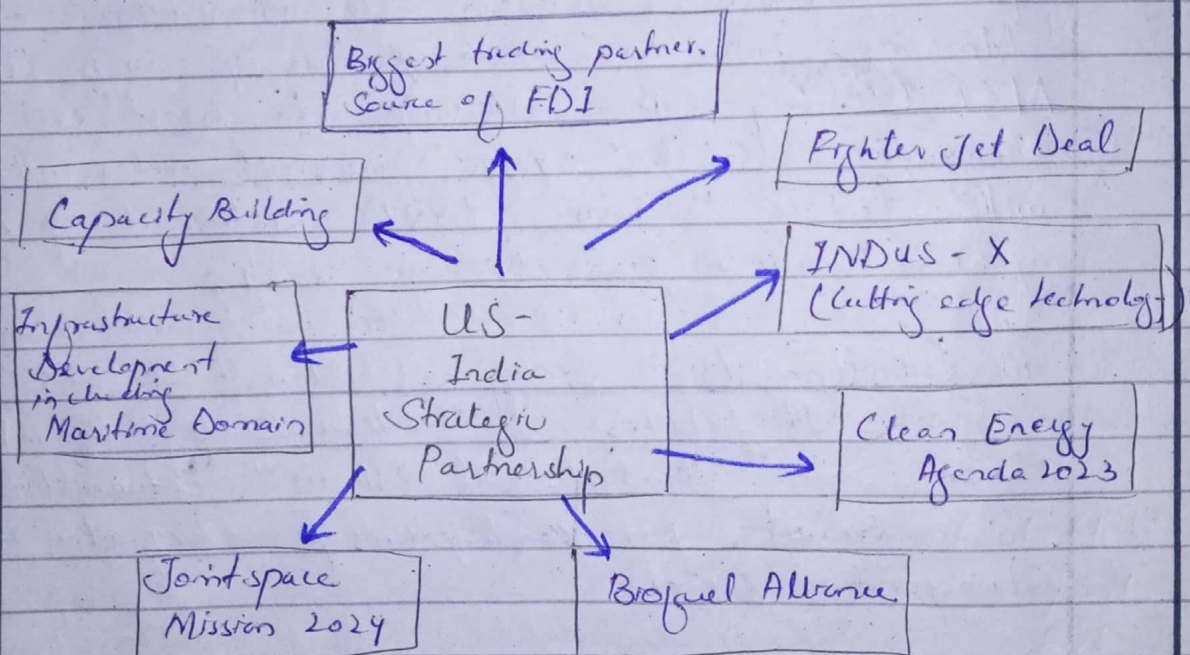 Biggest trading partner.
Source of FDI
Fighter Jet Deal
Capacity Building
INDUS - X
(Cutting edge technology)
Infrastructure
Development
including
Maritime Domain
US-
India
Strategic
Partnership
Clean Energy
Agenda 2023
Joint space
Mission 2024
Biofuel Alliance